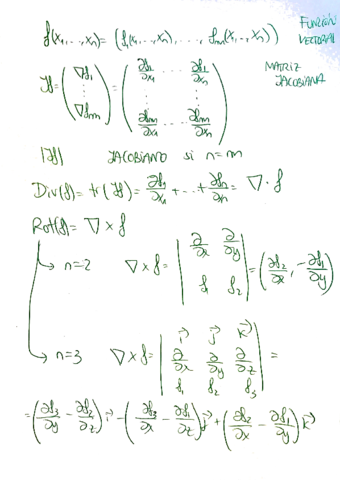 f(x₁,...,xₙ) = (f₁(x₁,...,xₙ), ..., fₘ(x₁,...,xₙ)) FUNCIÓN VECTORIAL
Jf = (∇f₁ ⋮ ∇fₘ) = (∂f₁/∂x₁ ... ∂f₁/∂xₙ ⋮ ⋮ ∂fₘ/∂x₁ ... ∂fₘ/∂xₙ) MATRIZ JACOBIANA
|Jf| JACOBIANO si n=m
Div(f) = tr(Jf) = ∂f₁/∂x₁ + ... + ∂fₙ/∂xₙ = ∇·f
Rot(f) = ∇ × f
↳ n=2 ∇ × f = |∂/∂x ∂/∂y f₁ f₂| = (∂f₂/∂x, -∂f₁/∂y)
↳ n=3 ∇ × f = |i⃗ j⃗ k⃗ ∂/∂x ∂/∂y ∂/∂z f₁ f₂ f₃| =
= (∂f₃/∂y - ∂f₂/∂z) i⃗ - (∂f₃/∂x - ∂f₁/∂z) j⃗ + (∂f₂/∂x - ∂f₁/∂y) k⃗